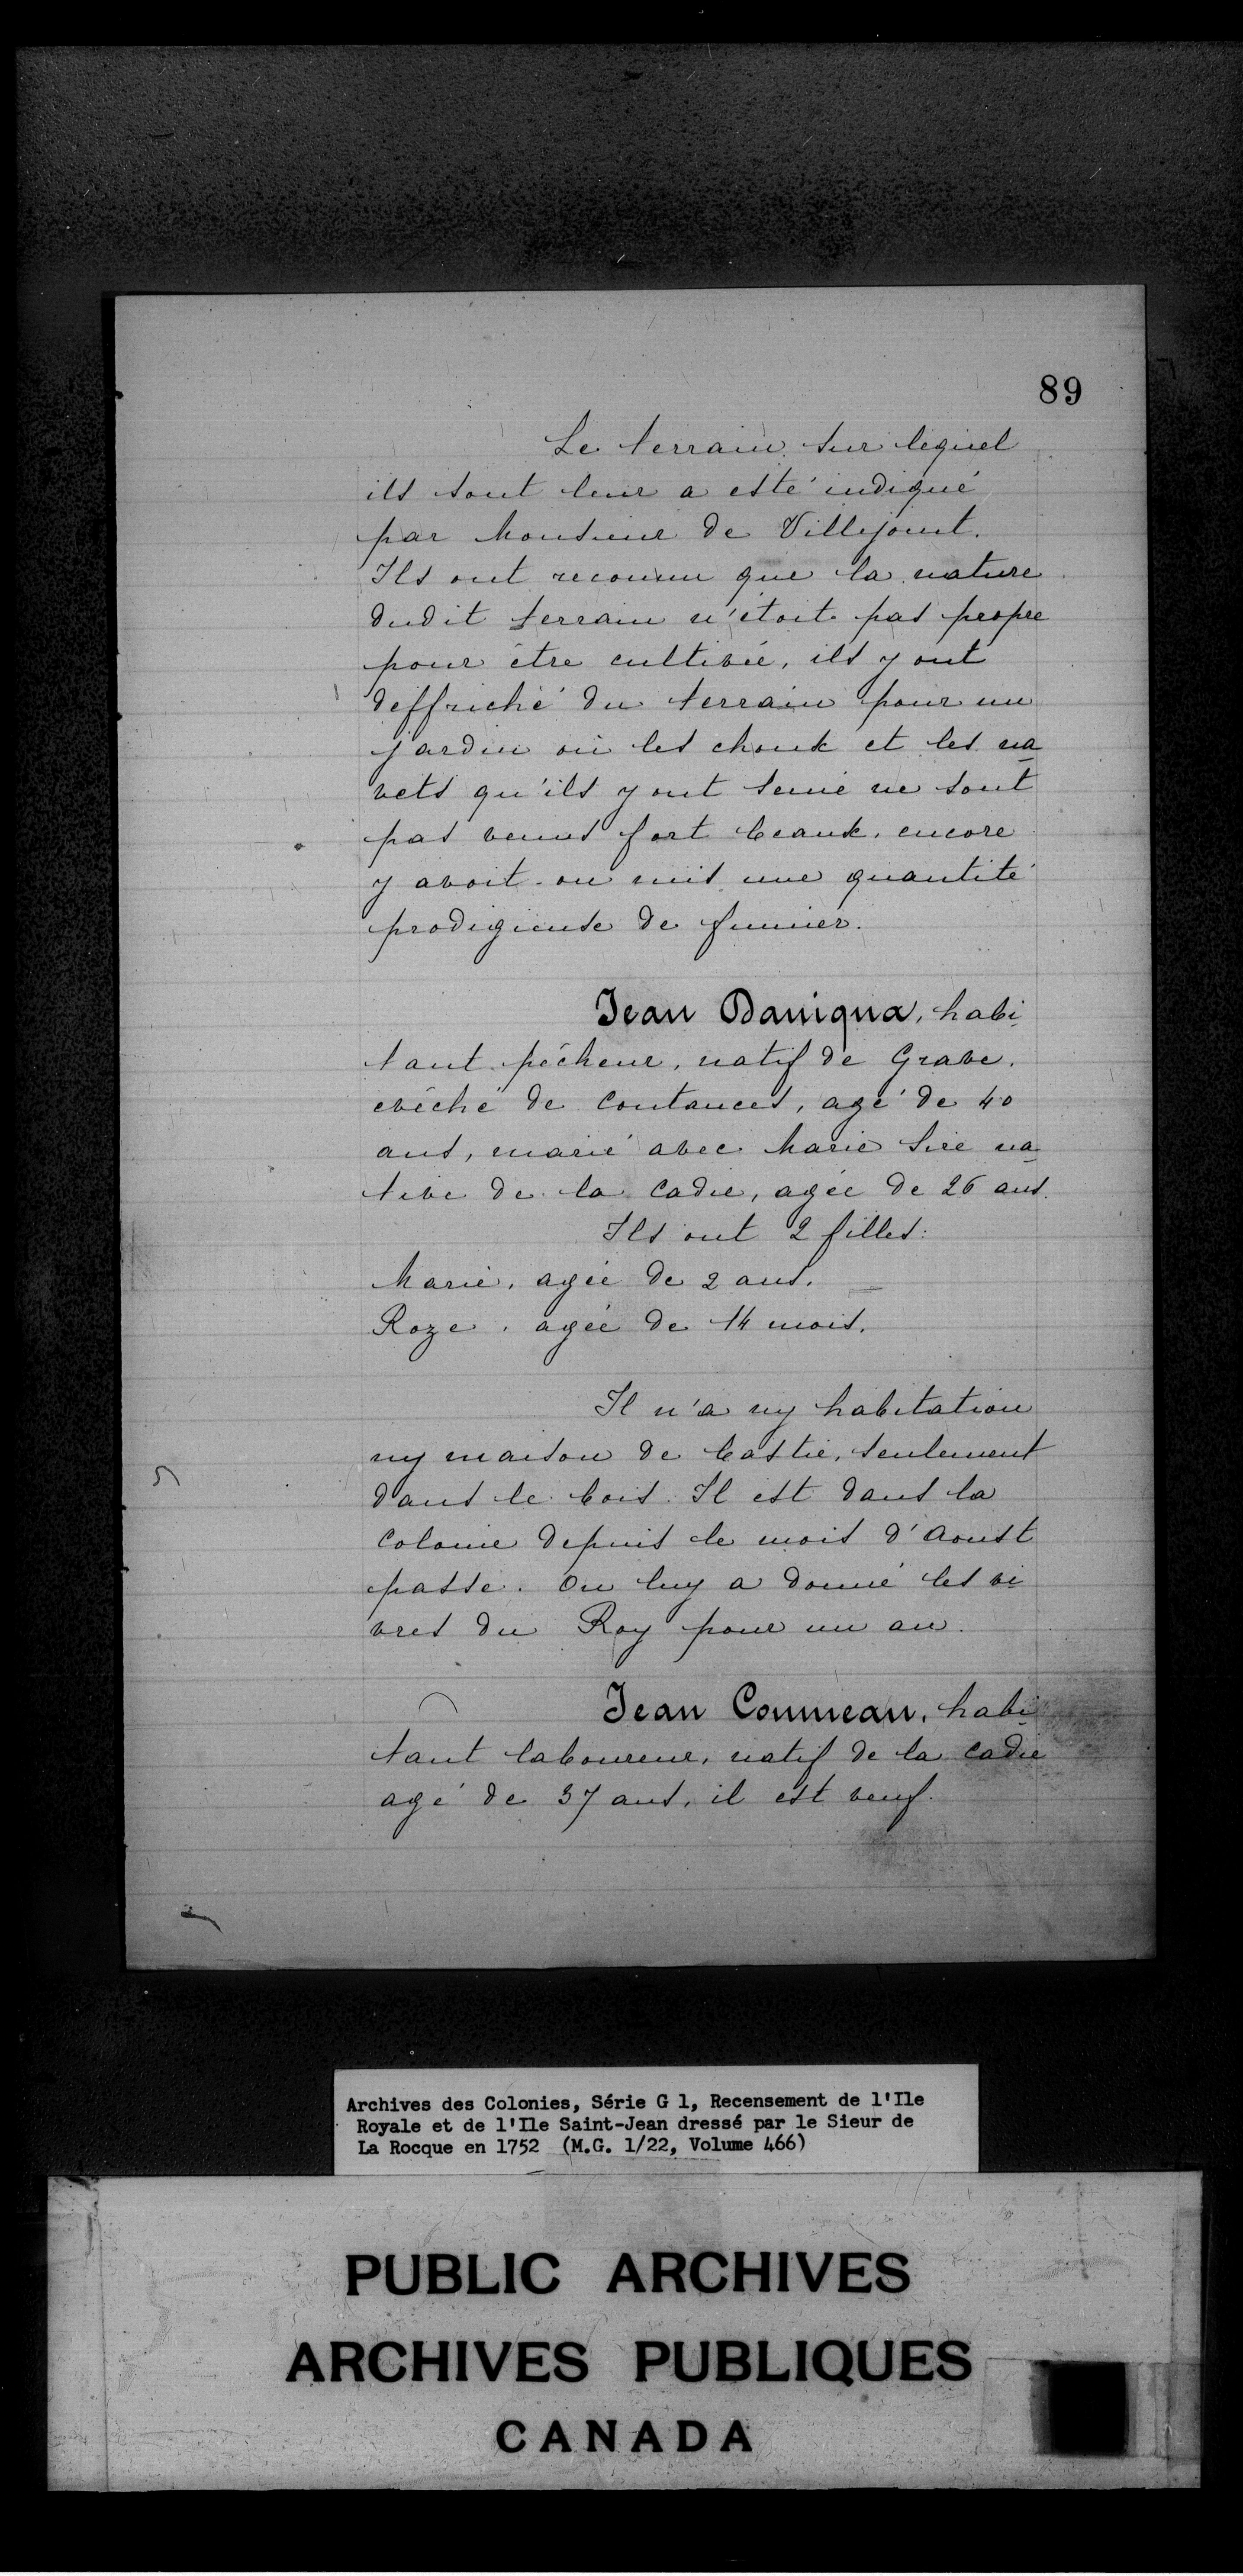 89
Le terrain sur lequel
ils sont leur a esté indiqué
par Monsieur de Villejouint.
Ils ont reconnu que la nature
dudit terrain n'étoit pas propre
pour être cultivée, ils y ont
deffriché du terrain pour un
jardin où les choux et les na
vets qu'ils y ont semé ne sont
pas venus fort beaux, encore
y avoit-on mis une quantité
prodigieuse de fumier.
Jean Daniqua, habi
tant pêcheur, natif de Grave,
evêché de Coutances, agé de 40
ans, marié avec Marie Sire na
tive de la Cadie, agée de 26 ans.
Ils ont 2 filles:
Marie, agée de 2 ans.
Roze, agée de 14 mois.
Il n'a ny habitation
ny maison de bastie, seulement
dans le bois. Il est dans la
Colonie depuis le mois d'Aoust
passé. On luy a donné les vi
vres du Roy pour un an.
Jean Commeau, habi
tant laboureur, natif de la Cadie
agé de 37 ans, il est veuf.
Archives des Colonies, Série G 1, Recensement de l'Ile
Royale et de l'Ile Saint-Jean dressé par le Sieur de
La Rocque en 1752 (M.G. 1/22, Volume 466)
PUBLIC ARCHIVES
ARCHIVES PUBLIQUES
CANADA